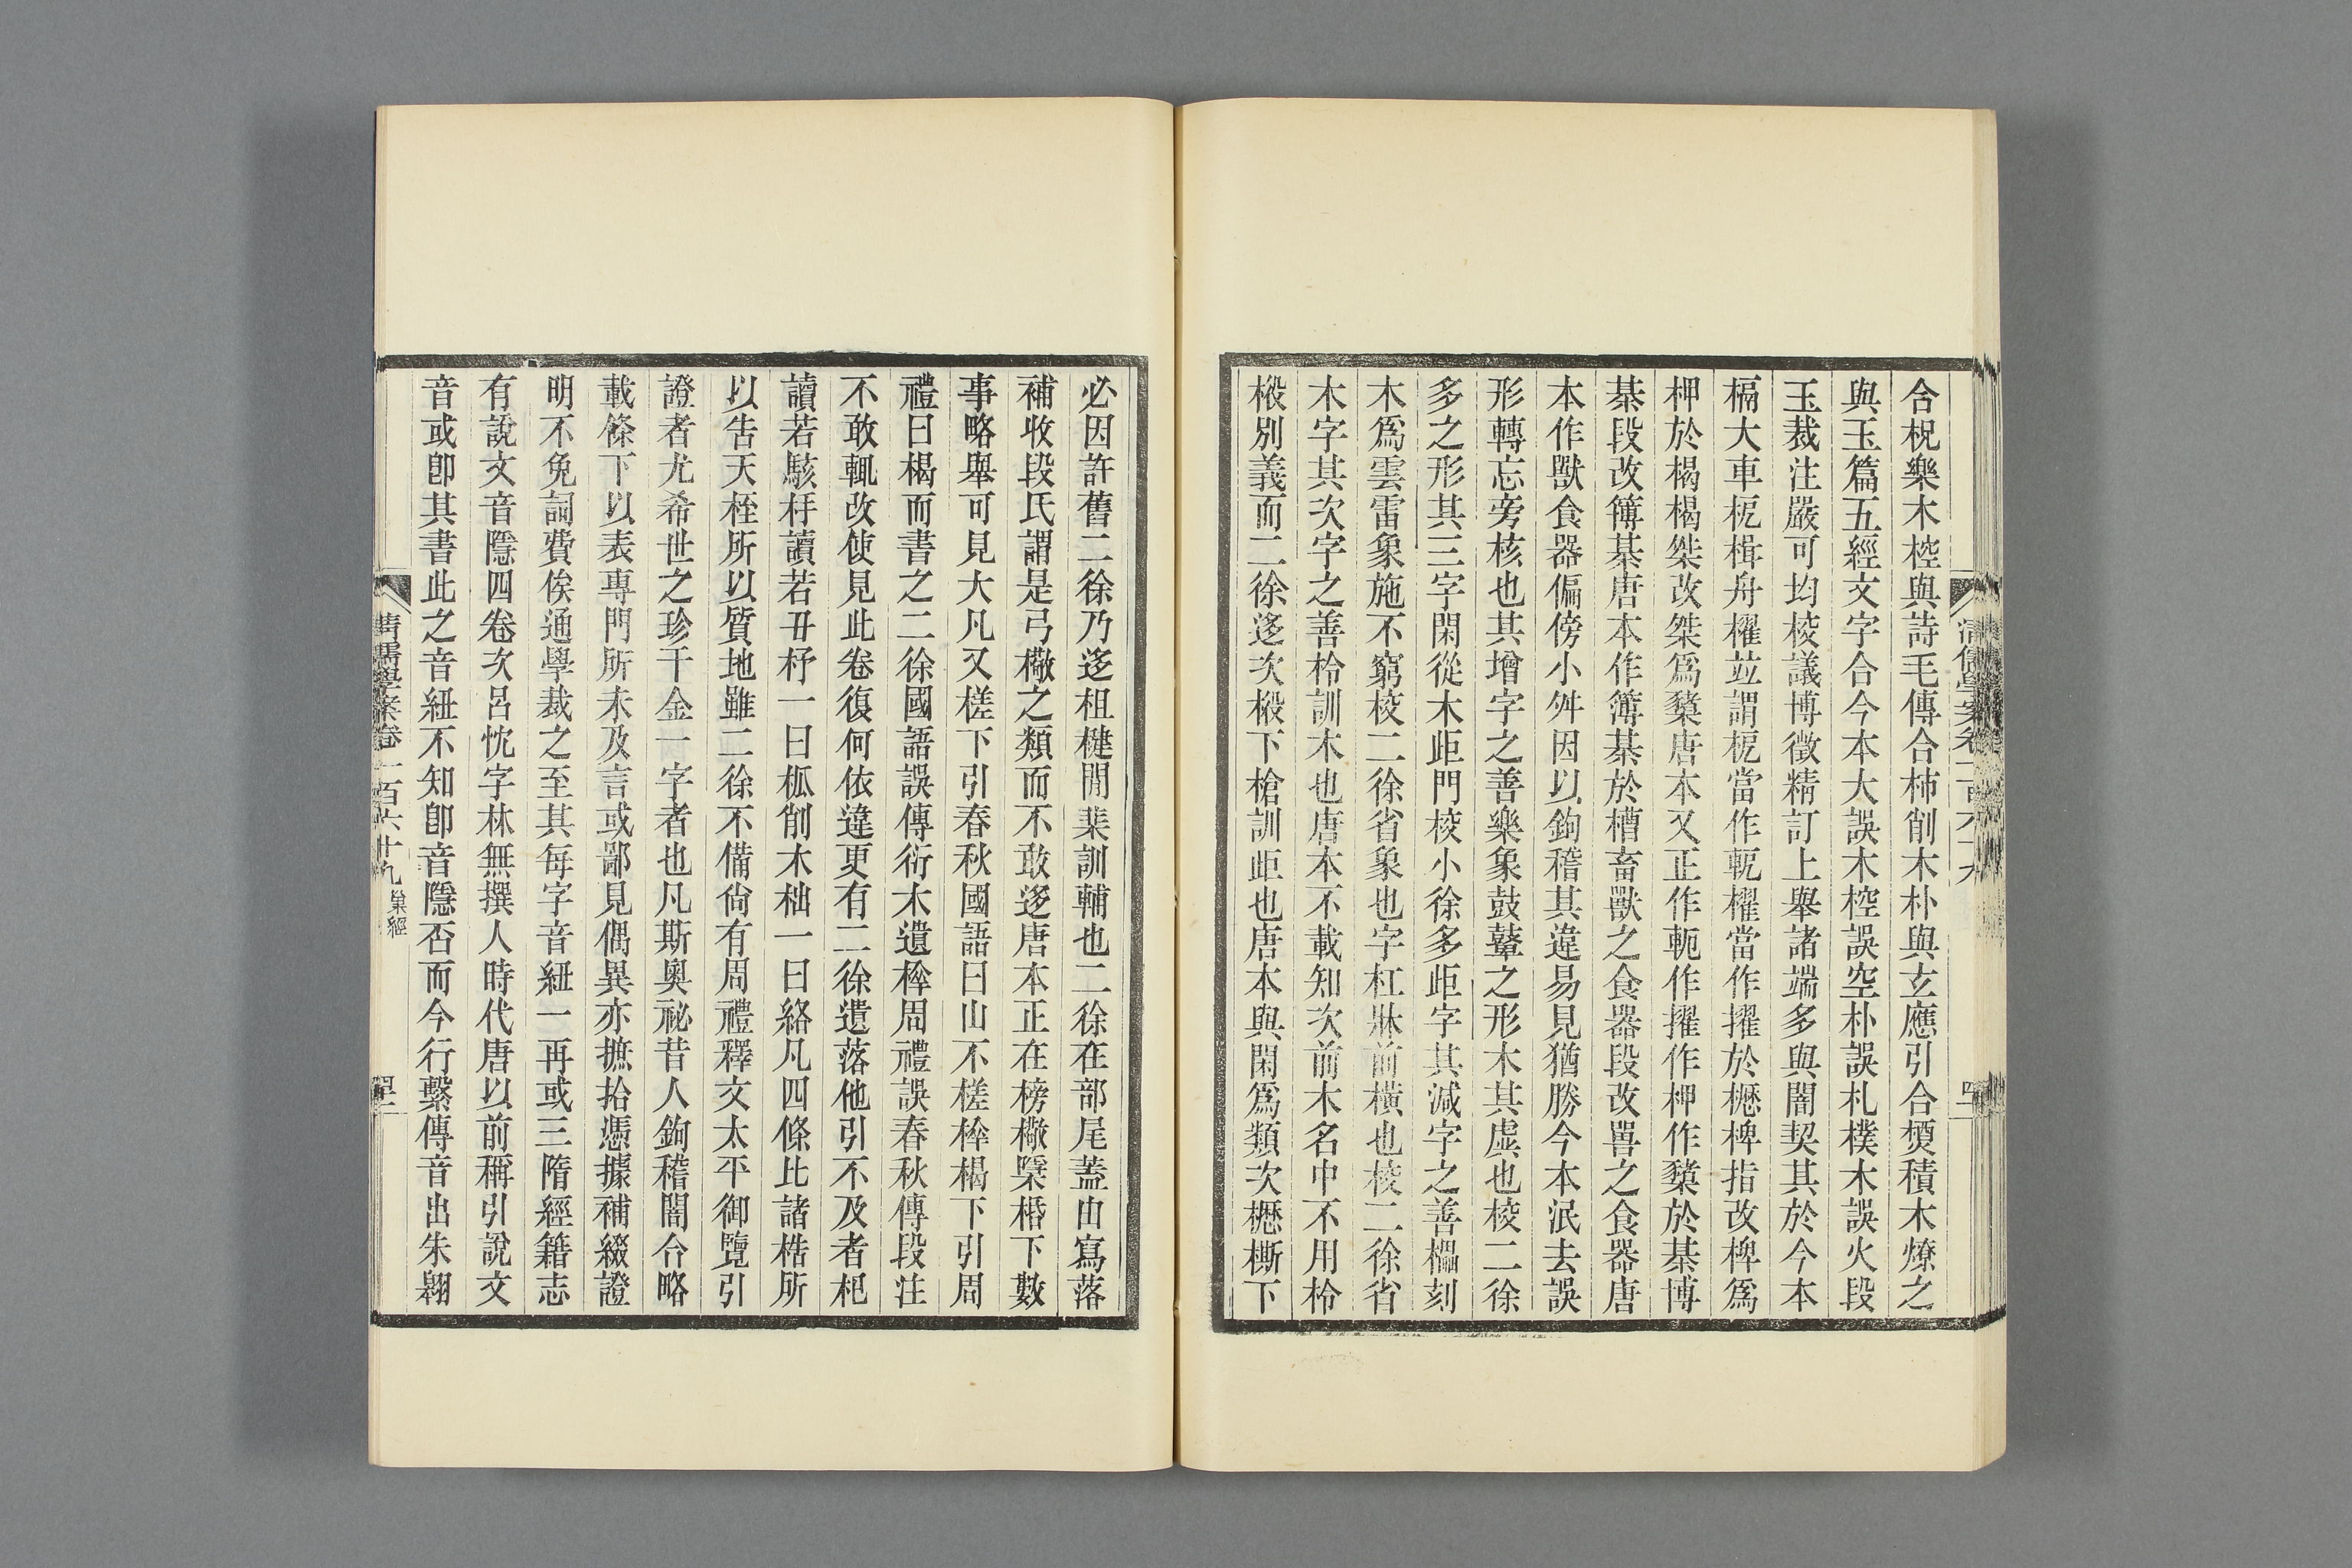 合柷樂木椌與詩毛傳合柿削木朴與玄應引合𣝕積木燎之
與玉篇五經文字合今本大誤木椌誤空朴誤札樸木誤火段
玉裁注嚴可均校議博徵精訂上舉諸端多與闇契其於今本
槅大車枙楫舟櫂竝謂枙當作軶櫂當作擢於櫪椑指改椑爲
柙於楬楬桀改桀爲櫫唐本又正作軛作擢作柙作櫫於棊博
棊段改簙棊唐本作簿棊於槽畜獸之食器段改嘼之食器唐
本作獸食器偏傍小舛因以鉤稽其違易見猶勝今本泯去誤
形轉忘旁核也其增字之善樂象鼓鼙之形木其虛也校二徐
多之形其三字閑從木歫門校小徐多歫字其減字之善櫑刻
木爲雲雷象施不窮校二徐省象也字杠牀前橫也校二徐省
木字其次字之善柃訓木也唐本不載知次前木名中不用柃
椴別義而二徐迻次椴下槍訓歫也唐本與閑爲類次櫪㯕下
必因許舊二徐乃迻柤楗閒棐訓輔也二徐在部尾蓋由寫落
補收段氏謂是弓檄之類而不敢迻唐本正在榜檄檃桰下數
事略舉可見大凡又槎下引春秋國語曰山不槎㭐楬下引周
禮曰楬而書之二徐國語誤傳衍木遺㭐周禮誤春秋傳段注
不敢輒改使見此卷復何依違更有二徐遺落他引不及者杷
讀若駭㭒讀若丑杼一曰柧削木柮一曰絡凡四條比諸梏所
以告天桎所以質地雖二徐不備尙有周禮釋文太平御覽引
證者尤希世之珍千金一字者也凡斯奧祕昔人鉤稽闇合略
載篠下以表專門所未及言或鄙見偶異亦摭拾憑據補綴證
明不免詞費俟通學裁之至其每字音紐一再或三隋經籍志
有說文音隱四卷次呂忱字林無撰人時代唐以前稱引說文
音或卽其書此之音紐不知卽音隱否而今行繫傳音出朱翱
清儒學案卷一百六十九 巢經